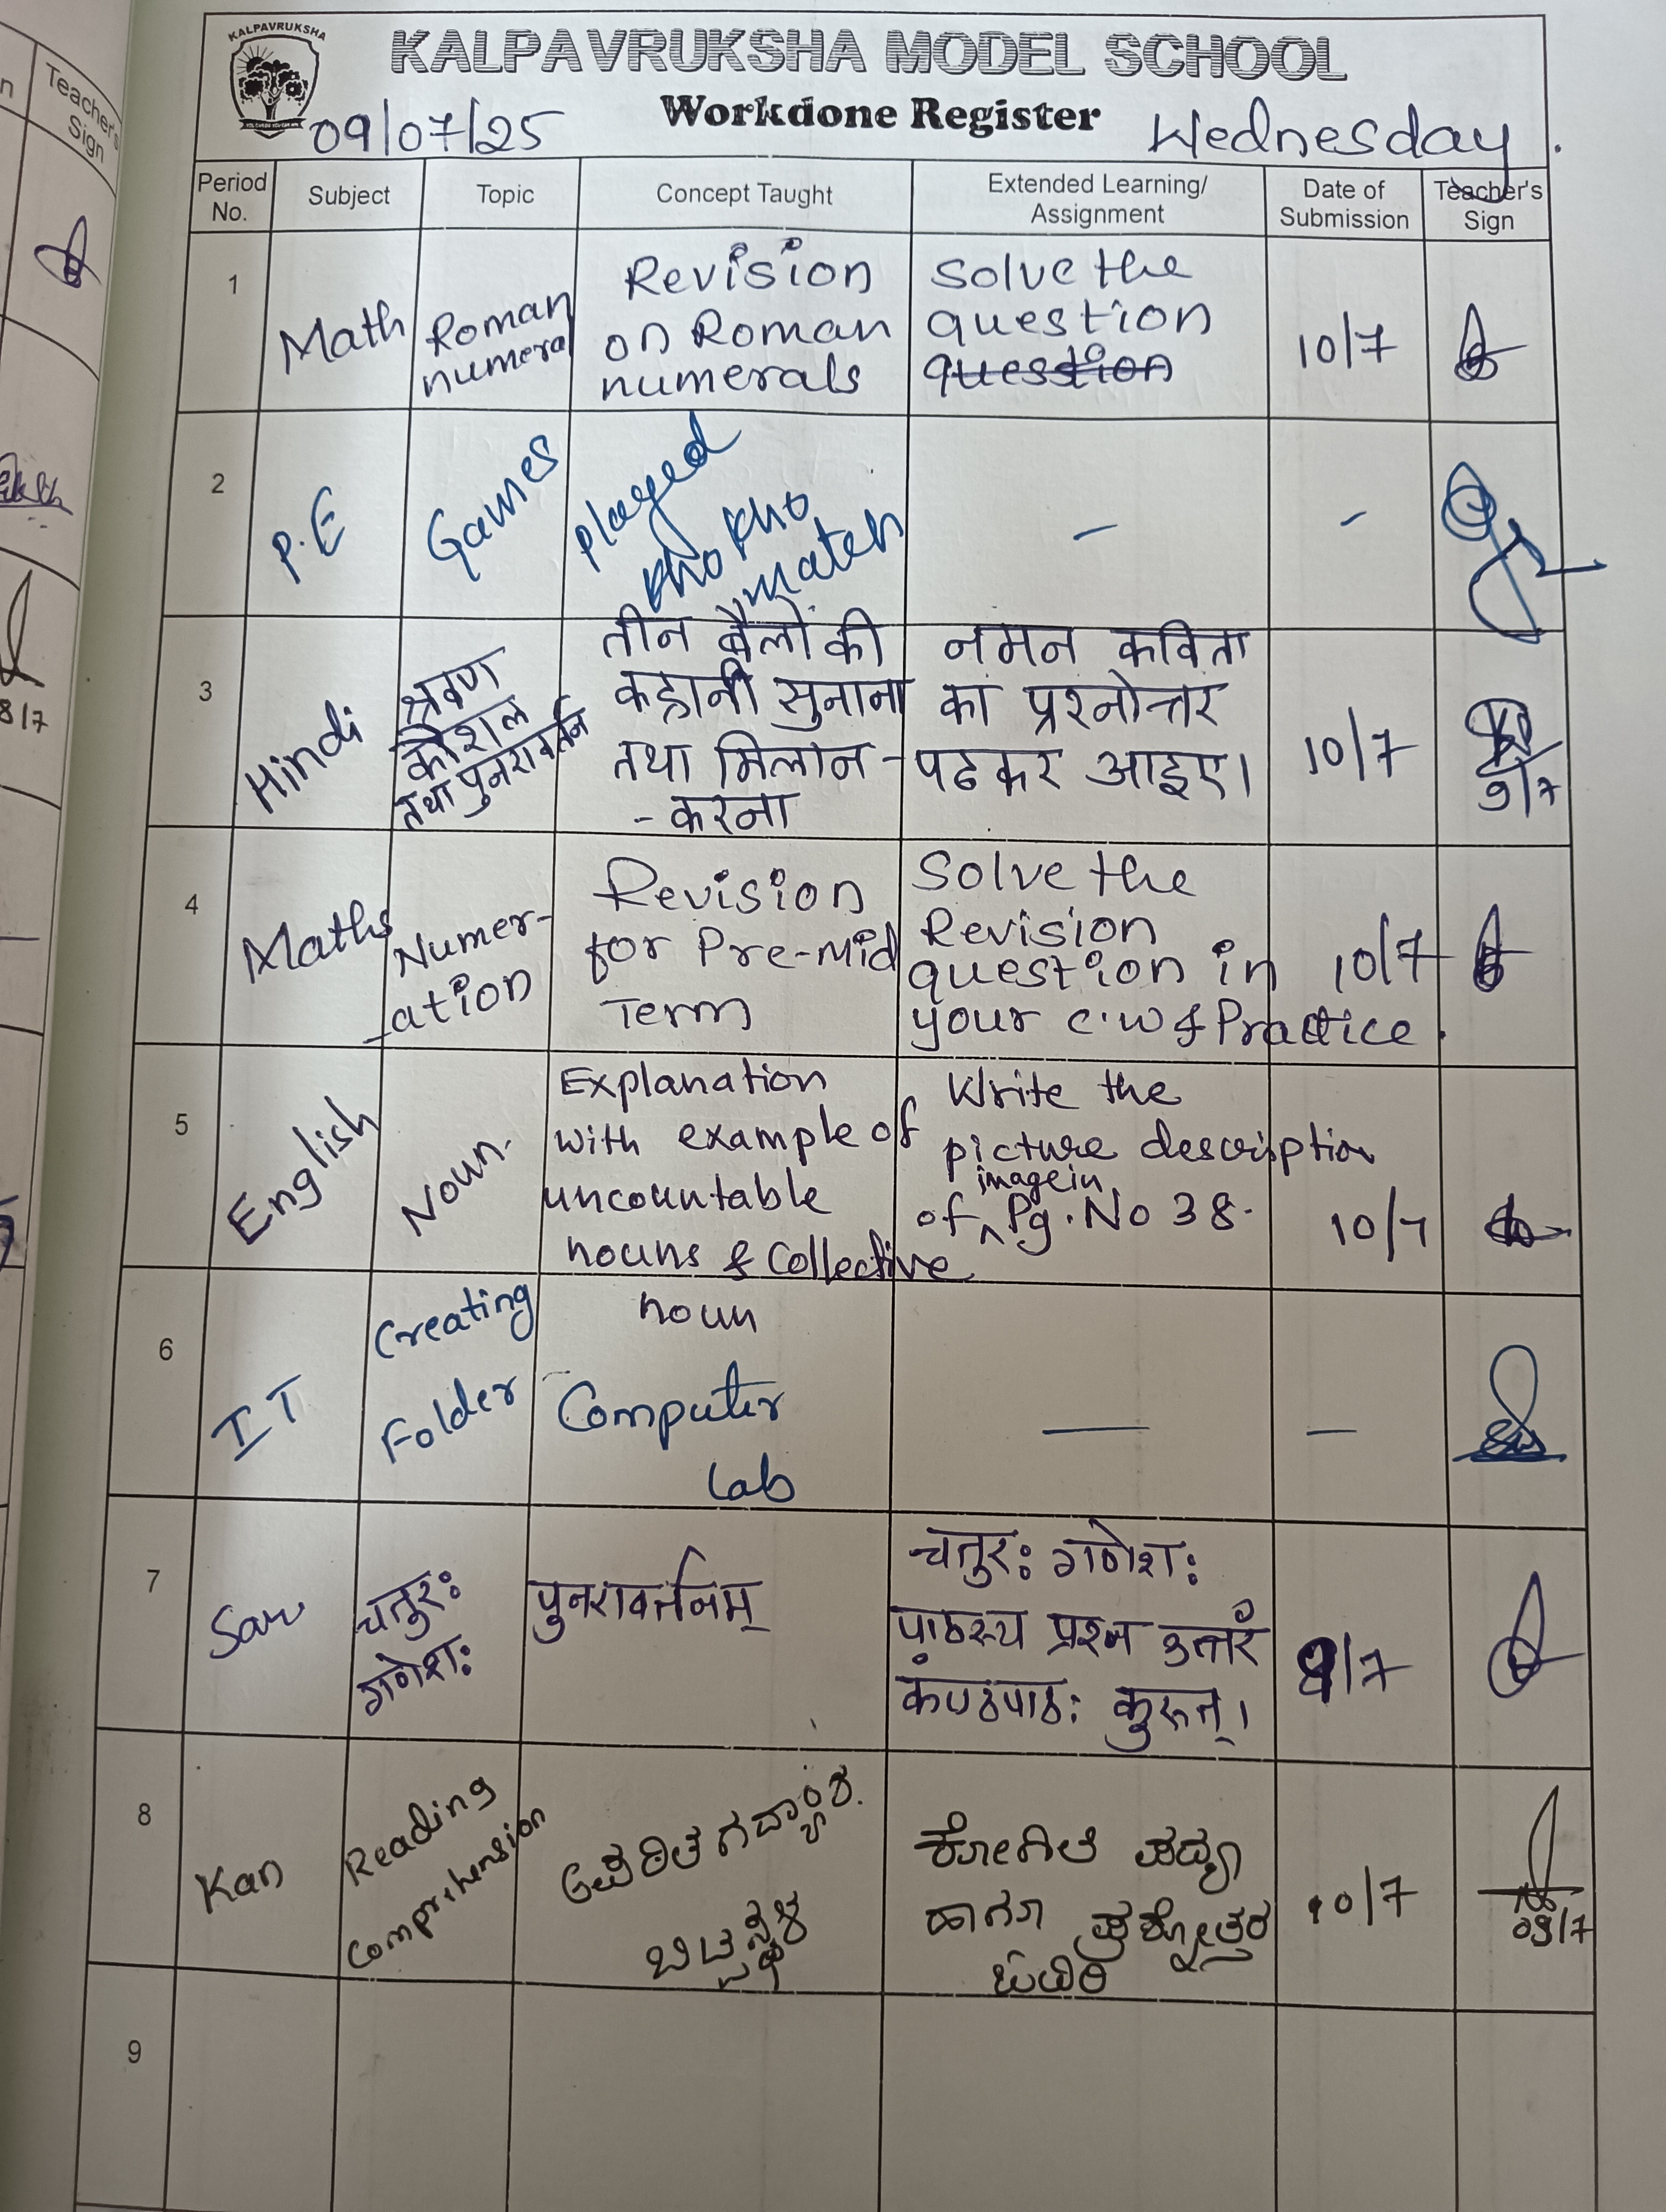 KALPAVRUKSHA
KALPAVRUKSHA MODEL SCHOOL
Workdone Register
09/07/25
Wednesday.
Teacher's
Sign
8/7
Period
No.
Subject
Topic
Concept Taught
Extended Learning/
Assignment
Date of
Submission
Teacher's
Sign
1
Math
Roman
numera
Revision
on Roman
numerals
Solve the
question
question
10/7
2
P.E
Games
played
kho kho
match
-
-
3
Hindi
श्रवण
कौशल
तथा पुनरावर्तन
तीन बैलों की
कहानी सुनाना
तथा मिलान -
- करना
नमन कविता
का प्रश्नोत्तर
पढकर आइए।
10/7
9/7
4
Maths
Numer-
-ation
Revision
for Pre-Mid
Term
Solve the
Revision
question in
your c.w & Practice.
10/7
5
English
Noun.
Explanation
with example of
uncountable
nouns & Collective
noun
Write the
picture description
image in
of ^ Pg. No 38.
10/7
6
IT
Creating
Folder
Computer
Lab
-
-
7
San
चतुरः
गणेशः
पुनरावर्तनम्
चतुरः गणेशः
पाठस्य प्रश्न उत्तरं
कंण्ठपाठः कुरुत्।
9/7
8
Kan
Reading
Comprehension
ಅಪಠಿತ ಗದ್ಯಾಂಶ.
ಬಿಟ್ಟಸ್ಥಳ
ಕೋಗಿಲೆ ಪದ್ಯ
ಹಾಗೂ ಪ್ರಶ್ನೋತ್ತರ
ಓದಿರಿ
10/7
09/7
9